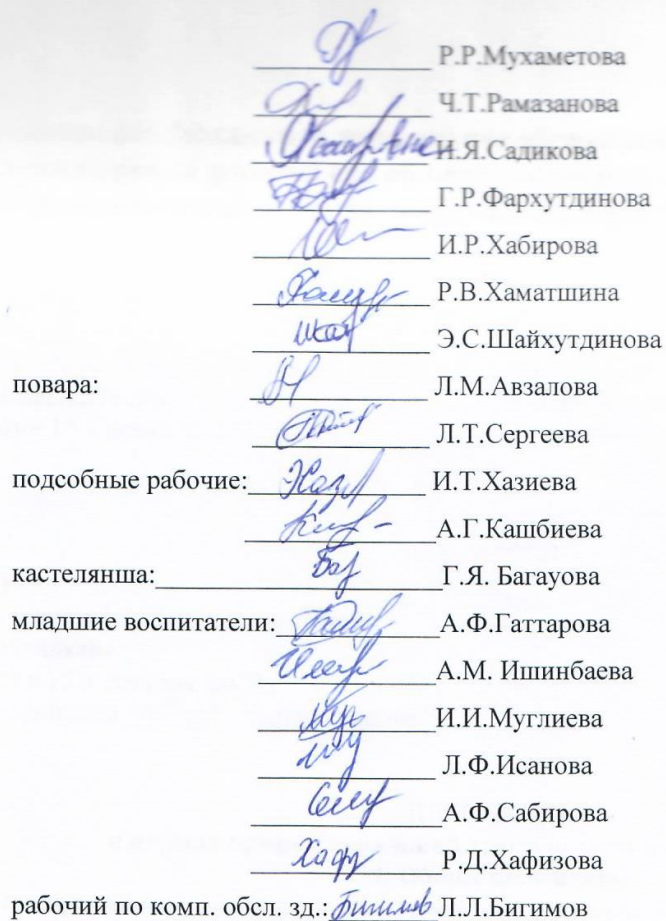 Р.Р.Мухаметова
Ч.Т.Рамазанова
И.Я.Садикова
Г.Р.Фархутдинова
И.Р.Хабирова
Р.В.Хаматшина
Э.С.Шайхутдинова
повара: Л.М.Авзалова
Л.Т.Сергеева
подсобные рабочие: И.Т.Хазиева
А.Г.Кашбиева
кастелянша: Г.Я. Багауова
младшие воспитатели: А.Ф.Гаттарова
А.М. Ишинбаева
И.И.Муглиева
Л.Ф.Исанова
А.Ф.Сабирова
Р.Д.Хафизова
рабочий по комп. обсл. зд.: Л.Л.Бигимов